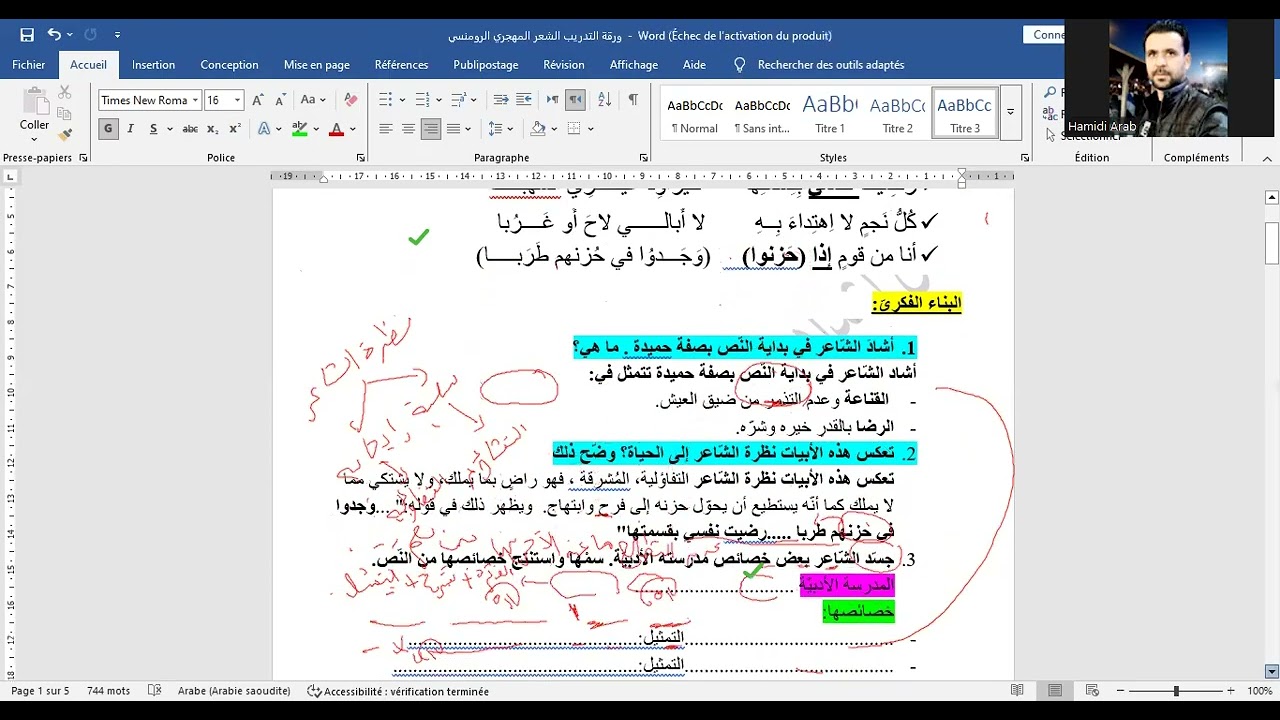 ورقة التدريب الشعر المهجري الرومنسي - Word (Échec de l'activation du produit)
Conne
Fichier Accueil Insertion Conception Mise en page Références Publipostage Révision Affichage Aide Rechercher des outils adaptés
Hamidi Arab
Coller
Times New Roma 16
G I S abc x₂ x²
AaBbCcDc AaBbCcDc AaBbC AaBbCc AaBbCc
¶ Normal ¶ Sans int... Titre 1 Titre 2 Titre 3
Sélectionner
Presse-papiers Police Paragraphe Styles Édition Compléments
كُلُّ نَجمٍ لا اِهتِداءَ بِـــهِ لا أَبالـــــي لاحَ أَو غَـــرُبا
أنا من قومٍ إذا (حَزنوا) (وَجَـــدوُا في حُزنهم طَرَبـــــا)
البناء الفكريَ:
1. أشادَ الشّاعر في بداية النّص بصفة حميدة . ما هي؟
أشاد الشّاعر في بداية النّص بصفة حميدة تتمثل في:
- القناعة وعدم التذمر من ضيق العيش.
- الرضا بالقدر خيره وشرّه.
2. تعكس هذه الأبيات نظرة الشّاعر إلى الحياة؟ وضّح ذلك
تعكس هذه الأبيات نظرة الشّاعر التفاؤلية، المُشرقة ، فهو راضٍ بما يملك، ولا يشتكي مما
لا يملك كما أنّه يستطيع أن يحوّل حزنه إلى فرح وابتهاج. ويظهر ذلك في قوله:" ...وجدوا
في حزنهم طربا .....رضيت نفسي بقسمتها"
3. جسّد الشّاعر بعض خصائص مدرسته الأدبيّة. سمّها واستنتج خصائصها من النّص.
المدرسة الأدبيّة ................................
خصائصها:
- ................................ التمثيل: ................................
- ................................ التمثيل: ................................
Page 1 sur 5 744 mots Arabe (Arabie saoudite) Accessibilité : vérification terminée 100%